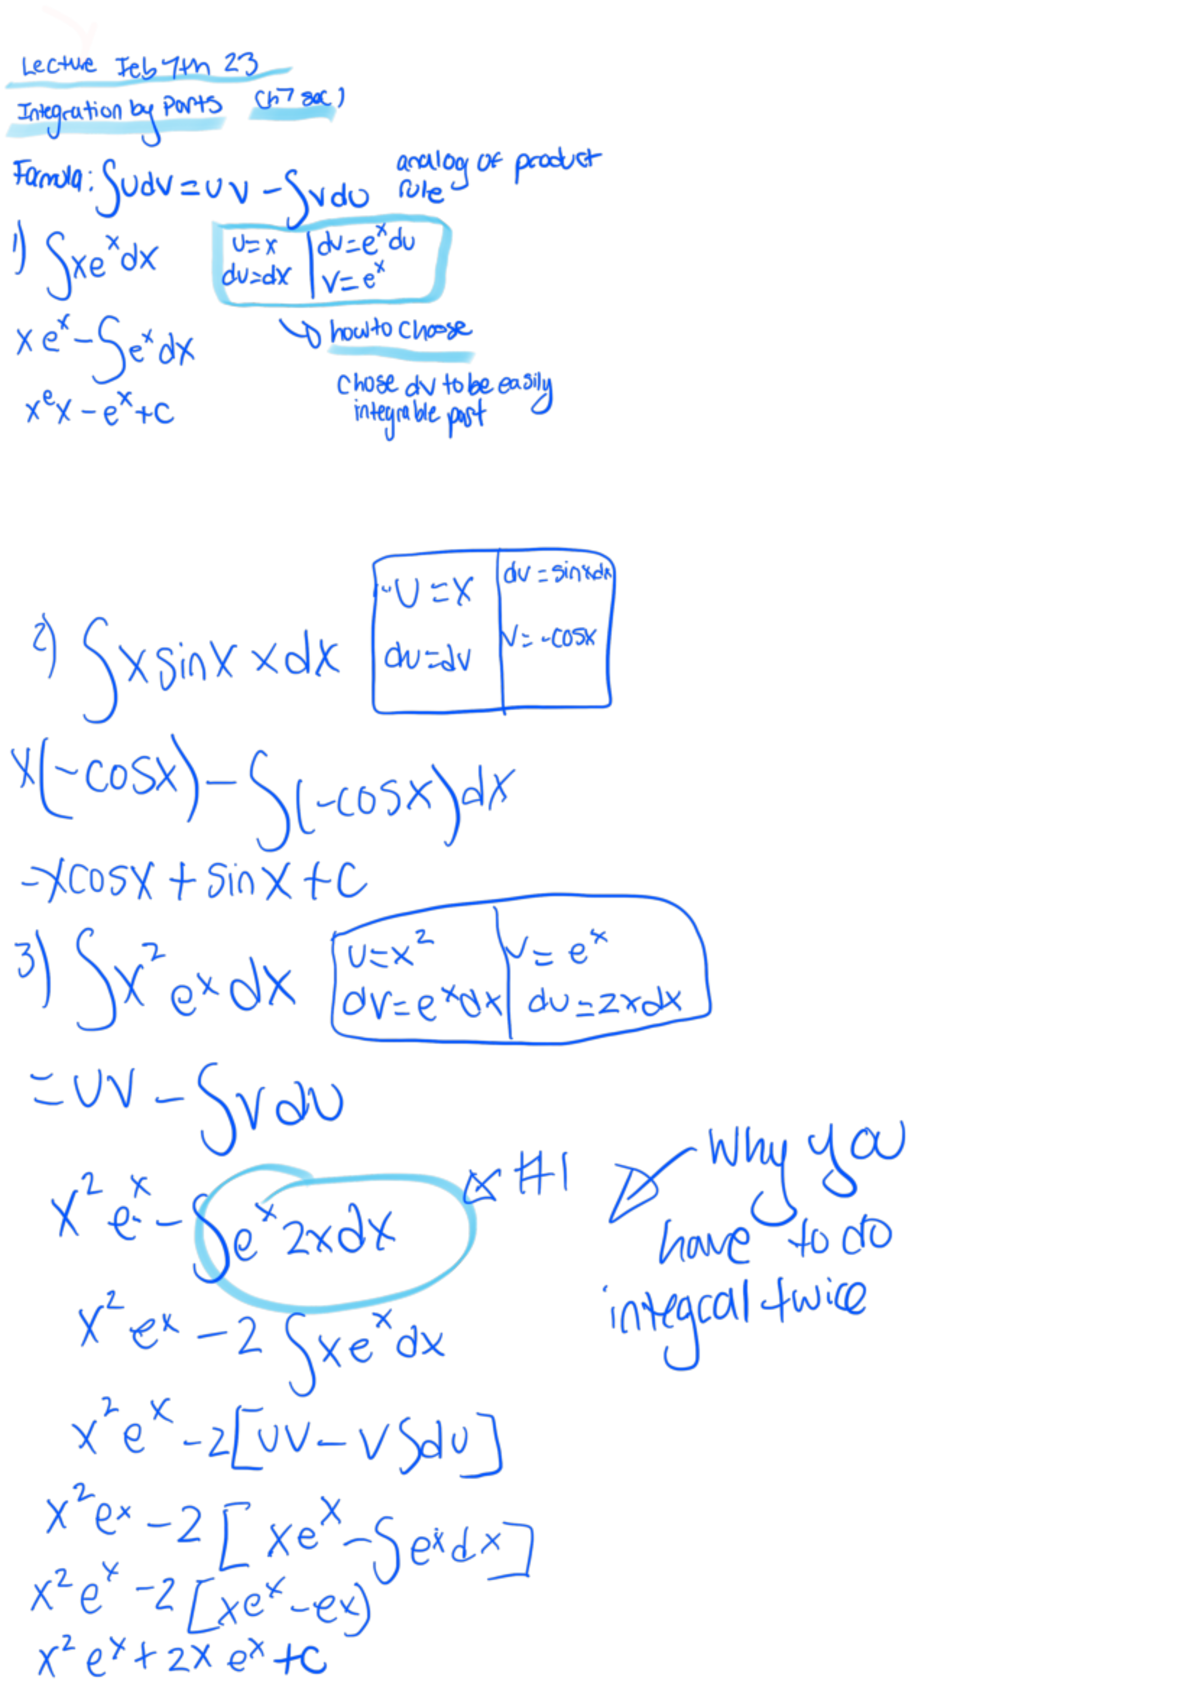 Lecture Feb 7th 23
Integration by Parts Ch7 sec 1
Formula: ∫udv = uv - ∫vdu analog of product rule
1) ∫xe^x dx
u=x | dv=e^x du
du=dx | v=e^x
↳ how to choose
xe^x - ∫e^x dx
chose dv to be easily
integrable part
x^e x - e^x + c
2) ∫x sinx x dx
u=x | dv=sinxdx
du=dv | v=-cosx
x(-cosx) - ∫(-cosx)dx
-xcosx + sinx + c
3) ∫x^2 e^x dx
u=x^2 | v=e^x
dv=e^x dx | du=2xdx
= uv - ∫vdu
x^2 e^x - ∫e^x 2xdx #1
why you
have to do
integral twice
x^2 e^x - 2∫xe^x dx
x^2 e^x - 2[uv - v∫du]
x^2 e^x - 2[xe^x - ∫e^x dx]
x^2 e^x - 2[xe^x - ex)
x^2 e^x + 2x e^x + c